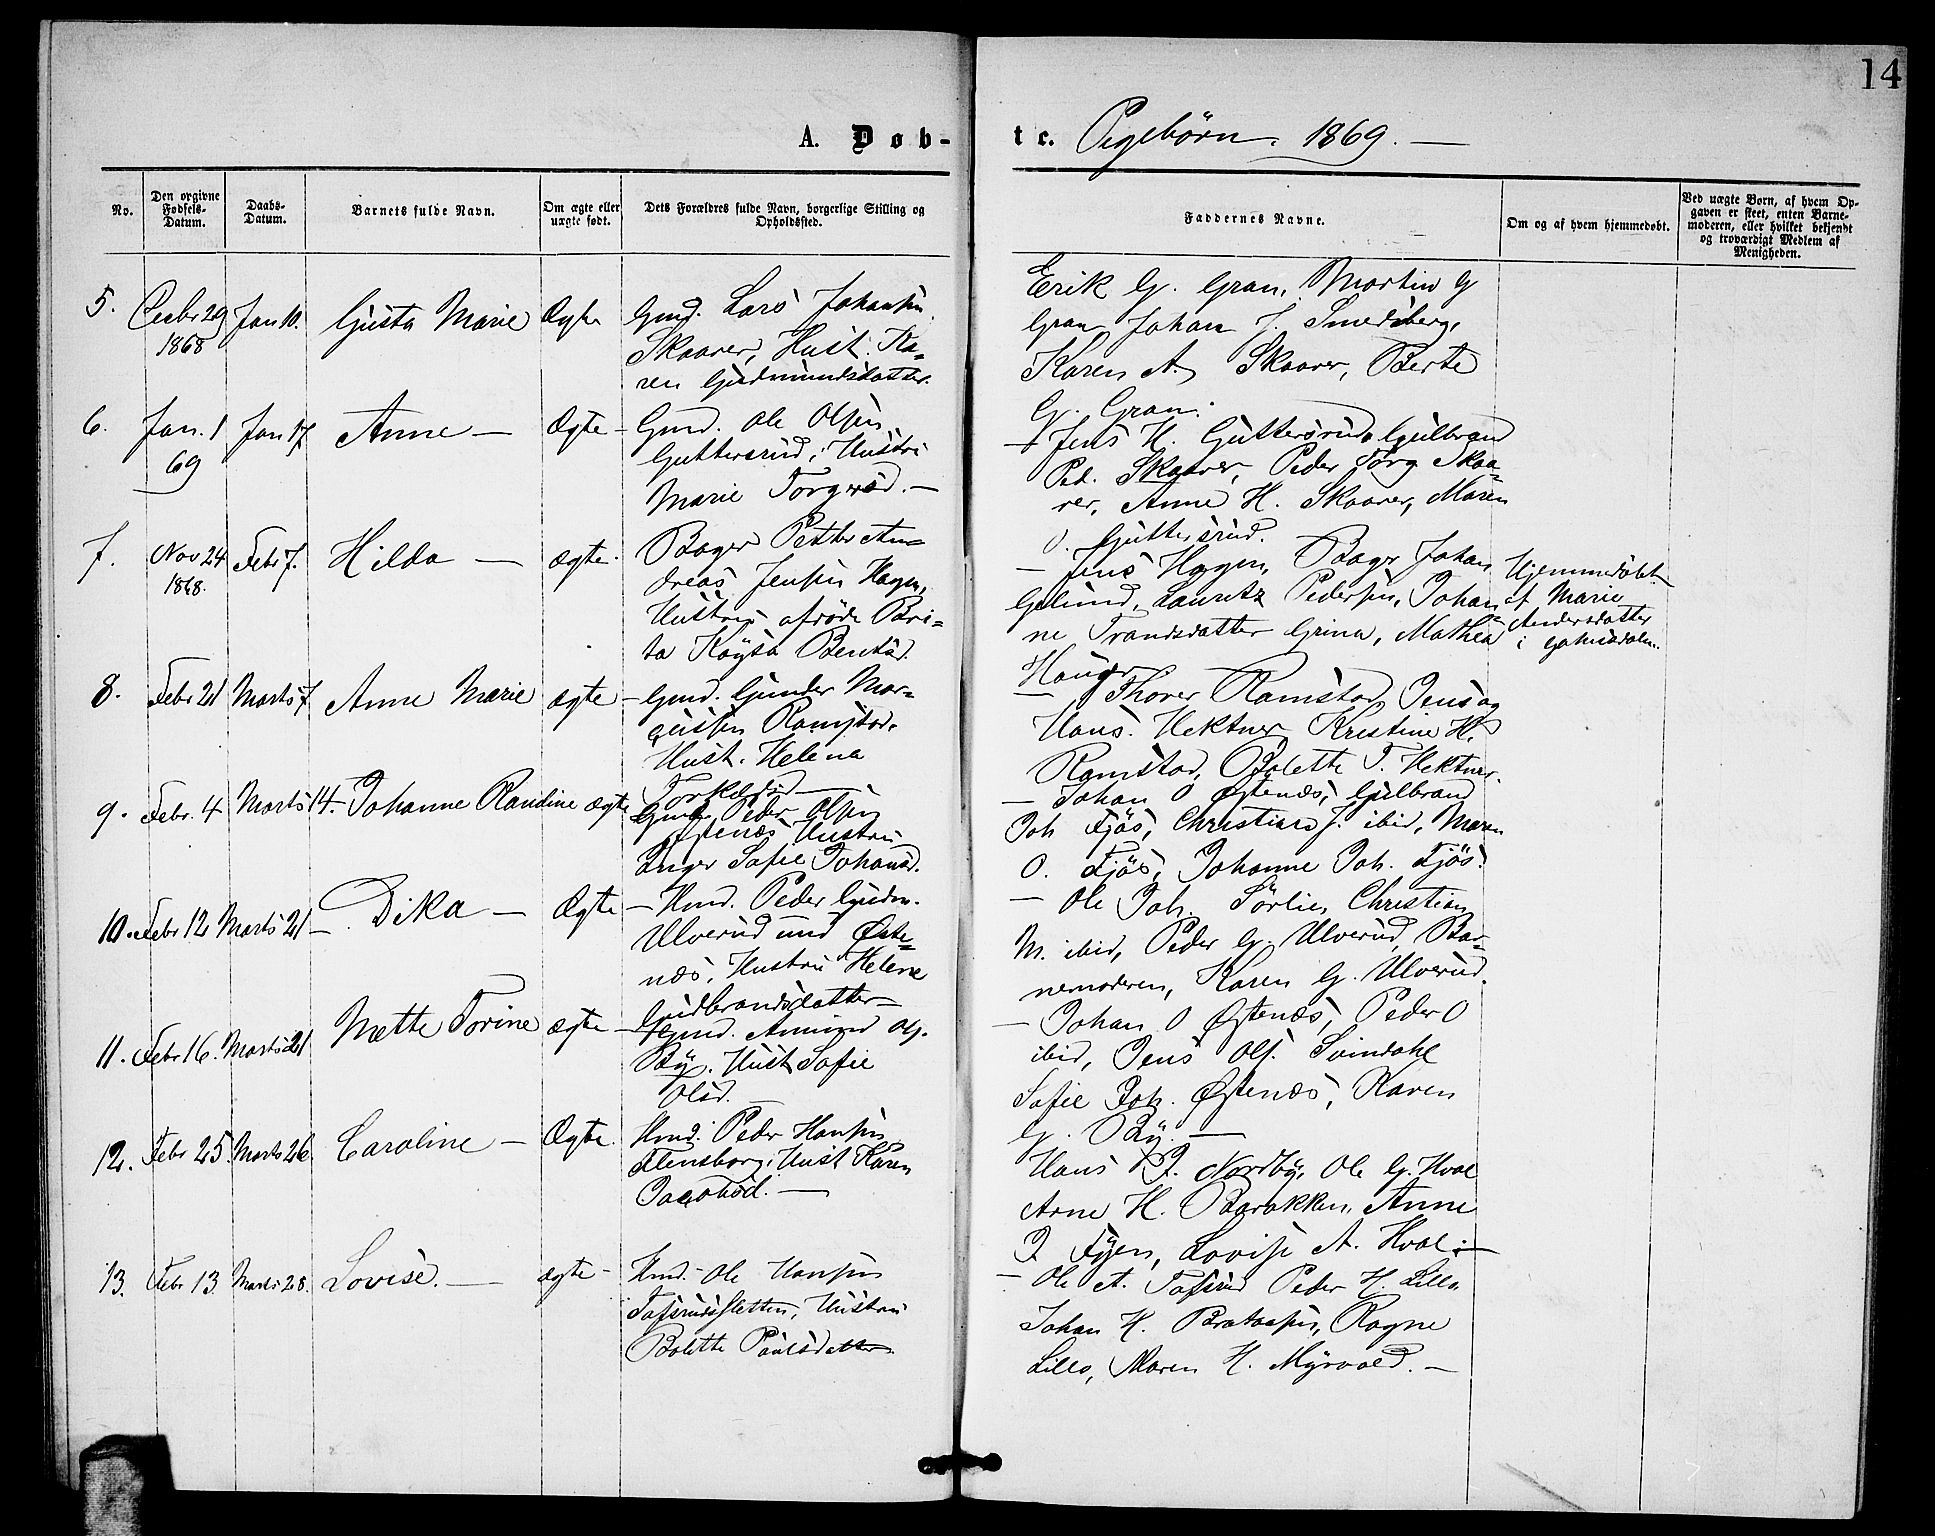 14
A. Døb-
te. Pigebørn. 1869. —
No.
Den opgivne Fødsels-Datum.
Daabs-Datum.
Barnets fulde Navn.
Om ægte eller uægte født.
Dets Forældres fulde Navn, borgerlige Stilling og Opholdssted.
Faddernes Navne.
Om og af hvem hjemmedøbt.
Ved uægte Børn, af hvem Opgaven er skeet, enten Barnemoderen, eller hvilket bekjendt og troværdigt Medlem af Menigheden.
5. Decbr 29 1868 Jan 10. Gusta Marie Ægte
Gmd. Lars Johansen
Skaarer, Hust. Ka-
ren Gudmundsdatter.
Erik G. Gran, Martin G
Gran Johan J. Smedsberg,
Karen A. Skaarer, Berte
G. Gran.
6. Jan. 1 69 Jan 17 Anne — Ægte —
Gmd. Ole Olsen
Guttersrud, Hustru
Marie Torgersd. —
— Jens H. Guttersrud, Gulbrand
Ped. Skaarer, Peder Torg Skaa-
rer, Anne H. Skaarer, Maren
O. Guttersrud.
7. Nov 24 1868. Febr 7. Hilda — ægte.
Bager Petter An-
dreas Jensen Hagen,
Hustru afdøde Bri-
ta Kajsa Bentsd.
— Jens Hagen, Bager Johan
Gulund, Lauretz Pedersen, Johan-
ne Trandsdatter Grina, Mathea
Hauger
Hjemmedøbt
af Marie
Andersdatter
i
8. Febr 21 Marts 7 Anne Marie ægte —
Gmd. Gunder Mar-
gussen Ramstad,
Hust. Helena
Torkelsd —
— Thorer Ramstad, Jens og
Hans Hektner Kristine H.
Ramstad, Bolette T. Hektner.
9. Febr. 4 Marts 14. Johanne Randine ægte
Gmd. Peder Olsen
Østenæs Hustru
Inger Sofie Johansd.
— Johan O Østenæs, Gulbrand
Joh Fjøs, Christian J. ibid, Maren
O. Fjøs, Johanne Joh. Fjøs.
10. Febr 12 Marts 21 — Dika — Ægte
— Hmd. Peder Gudm.
Ulverud und Øste-
næs, Hustru Helene
Gudbrandsdatter —
— Ole Joh. Sørlie, Christian
M. ibid, Peder G. Ulverud, Bar-
nemoderen, Karen G. Ulverud.
11. Febr 16. Marts 21 Mette Torine ægte
— Gmd. Amund Ols.
By, Hust Sofie
Olsd.
— Johan O Østenæs, Peder O
ibid, Jens Ols. Svindahl
Sofie Joh. Østenæs, Karen
G. By. —
12. Febr 25. Marts 26. Caroline — Ægte.
Hmd. Peder Hansen
Flensborg, Hust Karen
Jacobsd. —
Hans P. Nordby, Ole G. Hval
Arne H. Barakken, Anne
J Fjøs, Lovise A. Hval —
13. Febr 13. Marts 28. Lovise. — ægte —
Hmd. Ole Hansen
Tofsrudsletten, Hustru
Bolette Paulsdatter.
— Ole A. Tofsrud Peder H. Lillo
Johan H. Brataasen, Ragne
Lillo, Maren H. Myrvold. —